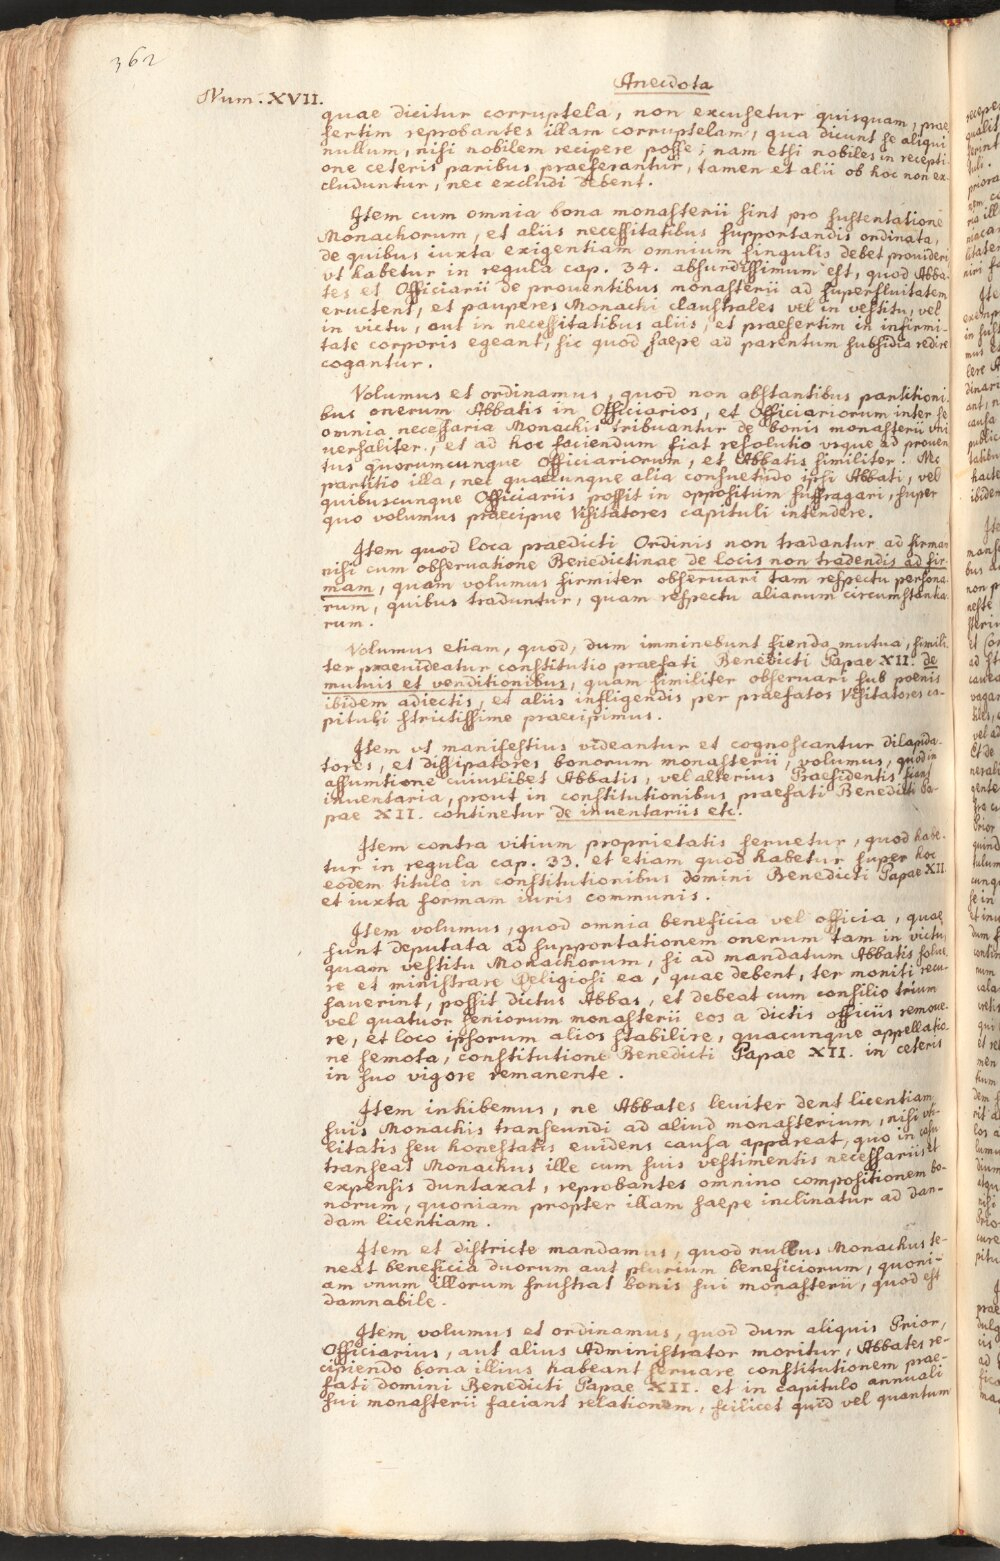 362
Anecdota
Num. XVII.
quae dicitur corruptela, non excusetur quisquam, prae
sertim reprobantes illam corruptelam, qua dicunt se aliqui
nullum, nisi nobilem recipere posse; nam etsi nobiles in recepti-
one ceteris paribus praeferantur, tamen et alii ob hoc non ex-
cluduntur, nec excludi debent.
Item cum omnia bona monasterii sint pro sustentatione
Monachorum, et aliis necessitatibus supportandis ordinata,
de quibus iuxta exigentiam omnium singulis debet provideri
vt habetur in regula cap. 34. absurdissimum est, quod Abba-
tes et Officiarii de prouentibus monasterii ad superfluitatem
eructent, et pauperes Monachi claustrales vel in vestitu, vel
in victu, aut in necessitatibus aliis, et praesertim in infirmi-
tate corporis egeant, sic quod saepe ad parentum subsidia redire
cogantur.
Volumus et ordinamus, quod non obstantibus partitioni-
bus onerum Abbatis in Officiarios, et Officiariorum inter se
omnia necessaria Monachis tribuantur de bonis monasterii vni
uersaliter, et ad hoc faciendum fiat resolutio vsque ad prouen
tus quorumcunque Officiariorum, et Abbatis similiter. Nec
partitio illa, nec quaecunque alia consuetudo ipsi Abbati, vel
quibuscunque Officiariis possit in oppositum suffragari, super
quo volumus praecipue Visitatores capituli intendere.
Item quod loca praedicti Ordinis non tradantur ad firmam
nisi cum obseruatione Benedictinae de locis non tradendis ad fir-
mam, quam volumus firmiter obseruari tam respectu persona-
rum, quibus traduntur, quam respectu aliarum circumstantia-
rum.
Volumus etiam, quod, dum imminebunt fienda mutua, simili-
ter praeuideatur constitutio praefati Benedicti Papae XII. de
mutuis et venditionibus, quam similiter obseruari sub poenis
ibidem adiectis, et aliis infligendis per praefatos Visitatores ca-
pituli strictissime praecipimus.
Item vt manifestius videantur et cognoscantur dilapida-
tores, et dissipatores bonorum monasterii, volumus, quod in
assumtione cuiuslibet Abbatis, vel alterius Praesidentis fiant
inuentaria, prout in constitutionibus praefati Benedicti Pa-
pae XII. continetur de inuentariis etc.
Item contra vitium proprietatis seruetur, quod habe-
tur in regula cap. 33. et etiam quod habetur super hoc
eodem titulo in constitutionibus domini Benedicti Papae XII.
et iuxta formam iuris communis.
Item volumus, quod omnia beneficia vel officia, quae
sunt deputata ad supportationem onerum tam in victu,
quam vestitu Monachorum, si ad mandatum Abbatis solue-
re et ministrare Religiosi ea, quae debent, ter moniti recu-
sauerint, possit dictus Abbas, et debeat cum consilio trium
vel quatuor seniorum monasterii eos a dictis officiis remoue-
re, et loco ipsorum alios stabilire, quacunque appellatio-
ne semota, constitutione Benedicti Papae XII. in ceteris
in suo vigore remanente.
Item inhibemus, ne Abbates leuiter dent licentiam
suis Monachis transeundi ad aliud monasterium, nisi vti-
litatis seu honestatis euidens causa appareat, quo in casu
transeat Monachus ille cum suis vestimentis necessariis et
expensis duntaxat, reprobantes omnino compositionem bo-
norum, quoniam propter illam saepe inclinatur ad dan-
dam licentiam.
Item et districte mandamus, quod nullus Monachus te-
neat beneficia duorum aut plurium beneficiorum, quoni-
am vnum illorum frustrat bonis sui monasterii, quod est
damnabile.
Item volumus et ordinamus, quod dum aliquis Prior,
Officiarius, aut alius Administrator moritur, Abbates re-
cipiendo bona illius habeant seruare constitutionem prae-
fati domini Benedicti Papae XII. et in capitulo annuali
sui monasterii faciant relationem, scilicet quid vel quantum